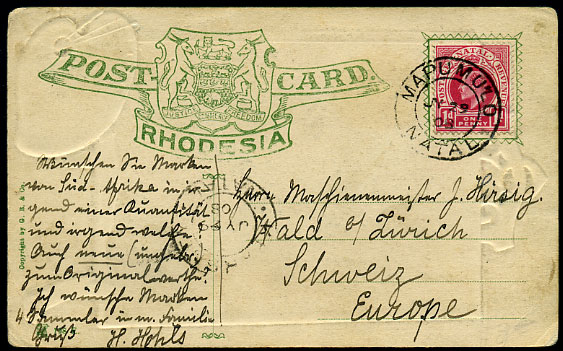 POST CARD.
JUSTICE FREEDOM
RHODESIA
NATAL
POSTAGE REVENUE
ONE PENNY
MAPUMULO
NATAL
Wünschen Sie Marken
von Süd-Afrika in ir-
gend einer Quantität
und irgend welche
Auch neue (ungebr.
zum Originalwerthe.
Ich wünsche Marken
4 Sammler in m. Familie
Gruß H. Hohls
Herrn Maschienenmeister J. Hirsig.
Wald o/ Zürich
Schweiz
Europe
Copyright by G. B. & Co.